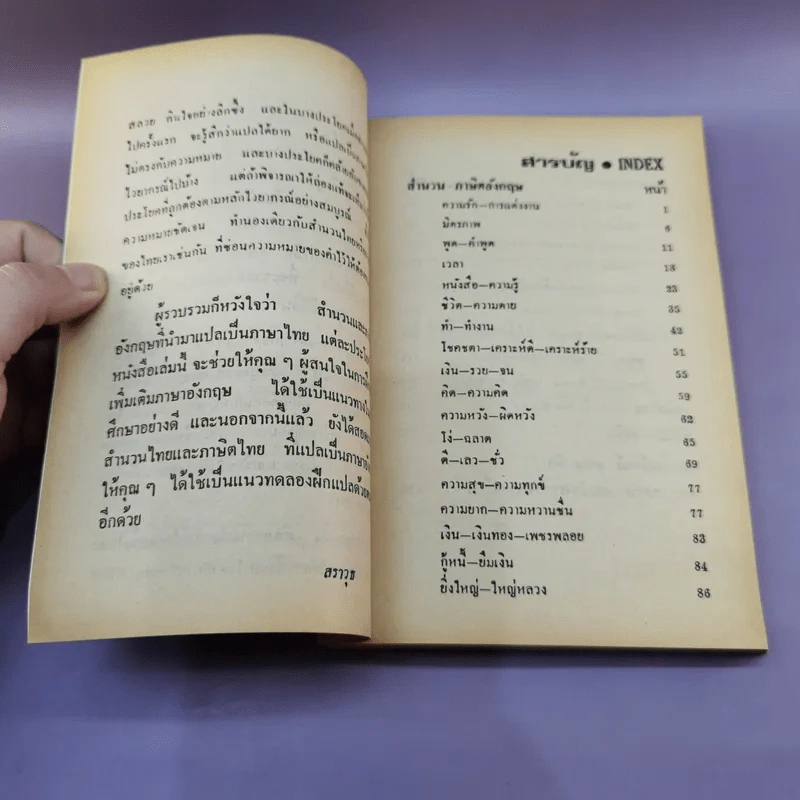 สลวย กินใจอย่างลึกซึ้ง และในบางประโยคเมื่อ
ไปครั้งแรก จะรู้สึกว่าแปลได้ยาก หรือแปลเป็น
ไม่ตรงกับความหมาย และบางประโยคก็คล้าย
ไวยากรณ์ไปบ้าง แต่ถ้าพิจารณาให้ถ่องแท้จะเห็น
ประโยคที่ถูกต้องตามหลักไวยากรณ์อย่างสมบูรณ์
ความหมายชัดเจน ทำนองเดียวกับสำนวนไทย
ของไทยเราเช่นกัน ที่ซ่อนความหมายของคำไว้ให้
อยู่ด้วย
ผู้รวบรวมก็หวังใจว่า สำนวนและ
อังกฤษที่นำมาแปลเป็นภาษาไทย แต่ละประโยค
หนังสือเล่มนี้ จะช่วยให้คุณ ๆ ผู้สนใจในการ
เพิ่มเติมภาษาอังกฤษ ได้ใช้เป็นแนวทาง
ศึกษาอย่างดี และนอกจากนี้แล้ว ยังได้
สำนวนไทยและภาษิตไทย ที่แปลเป็นภาษา
ให้คุณ ๆ ได้ใช้เป็นแนวทดลองฝึกแปลด้วย
อีกด้วย
สราวุธ
สารบัญ • INDEX
สำนวน ภาษิตอังกฤษ หน้า
ความรัก—การแต่งงาน 1
มิตรภาพ 6
พูด—คำพูด 11
เวลา 13
หนังสือ—ความรู้ 23
ชีวิต—ความตาย 35
ทำ—ทำงาน 42
โชคชตา—เคราะห์ดี—เคราะห์ร้าย 51
เงิน—รวย—จน 55
คิด—ความคิด 59
ความหวัง—ผิดหวัง 62
โง่—ฉลาด 65
ดี—เลว—ชั่ว 69
ความสุข—ความทุกข์ 77
ความยาก—ความหวานชื่น 77
เงิน—เงินทอง—เพชรพลอย 83
กู้หนี้—ยืมเงิน 84
ยิ่งใหญ่—ใหญ่หลวง 86